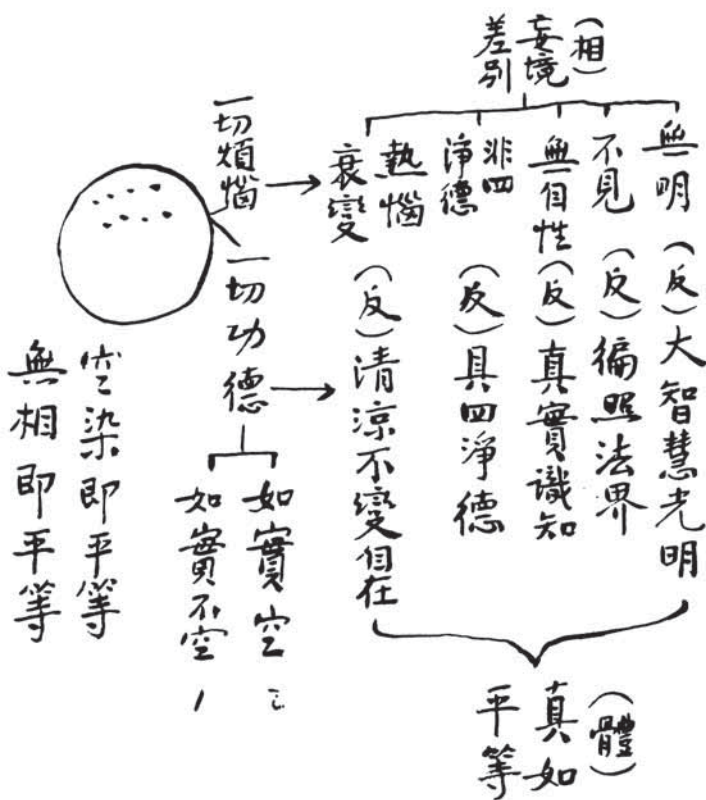 (相)
妄境
差別
無明 (反) 大智慧光明
不見 (反) 徧照法界
無自性 (反) 真實識知
非四
淨德
(反) 具四淨德
熱惱
衰變
(反) 清涼不變自在
(體)
真如
平等
一切煩惱
一切功德
如實空
如實不空
空染即平等
無相即平等